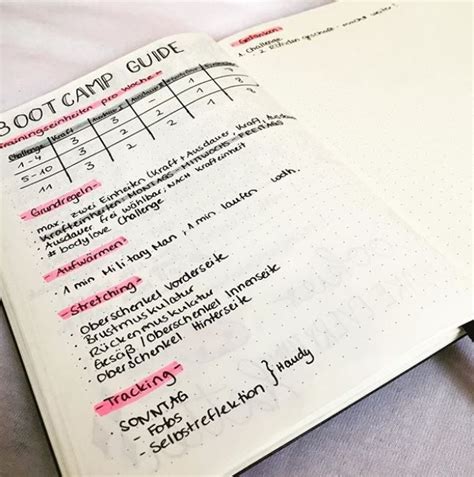 BOOT CAMP GUIDE
Trainingseinheiten pro Woche
Challenge Kraft Ausdauer
1-4 3 3 - 1
5-10 3 2 2
11 3 2 2
- Grundregeln -
. max. zwei Einheiten (Kraft + Ausdauer, Kraft, Ausdauer
. Krafteinheiten: MONTAGS - MITTWOCHS - FREITAGS
. Ausdauer frei wählbar; NACH Krafteinheit
. # bodylove Challenge
- Aufwärmen -
. 1 min Military Man, 1 min laufen wdh.
- Stretching -
. Oberschenkel Vorderseite
. Brustmuskulatur
. Rückenmuskulatur
. Gesäß / Oberschenkel Innenseite
. Oberschenkel Hinterseite
- Tracking -
. SONNTAG
- Fotos
- Selbstreflektion } Handy
- Gedanken -
1 Challenge
- 2 Runden geschafft